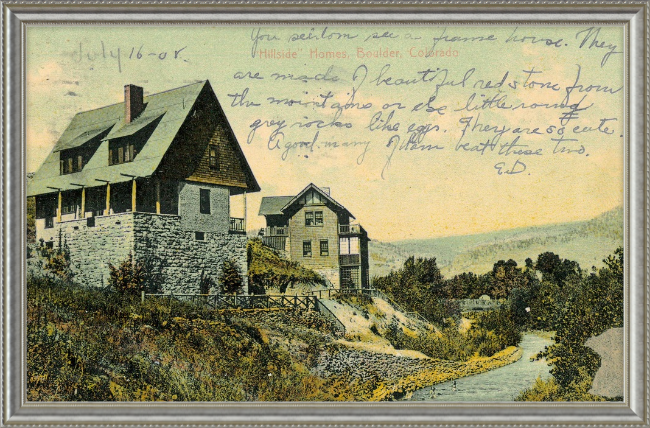 You seldom see a frame house. They
July 16-08.
"Hillside" Homes, Boulder, Colorado
are made of beautiful red stone from
the mountains or else little round
grey rocks like eggs. They are so cute.
A good many of them beat these two.
E.D.